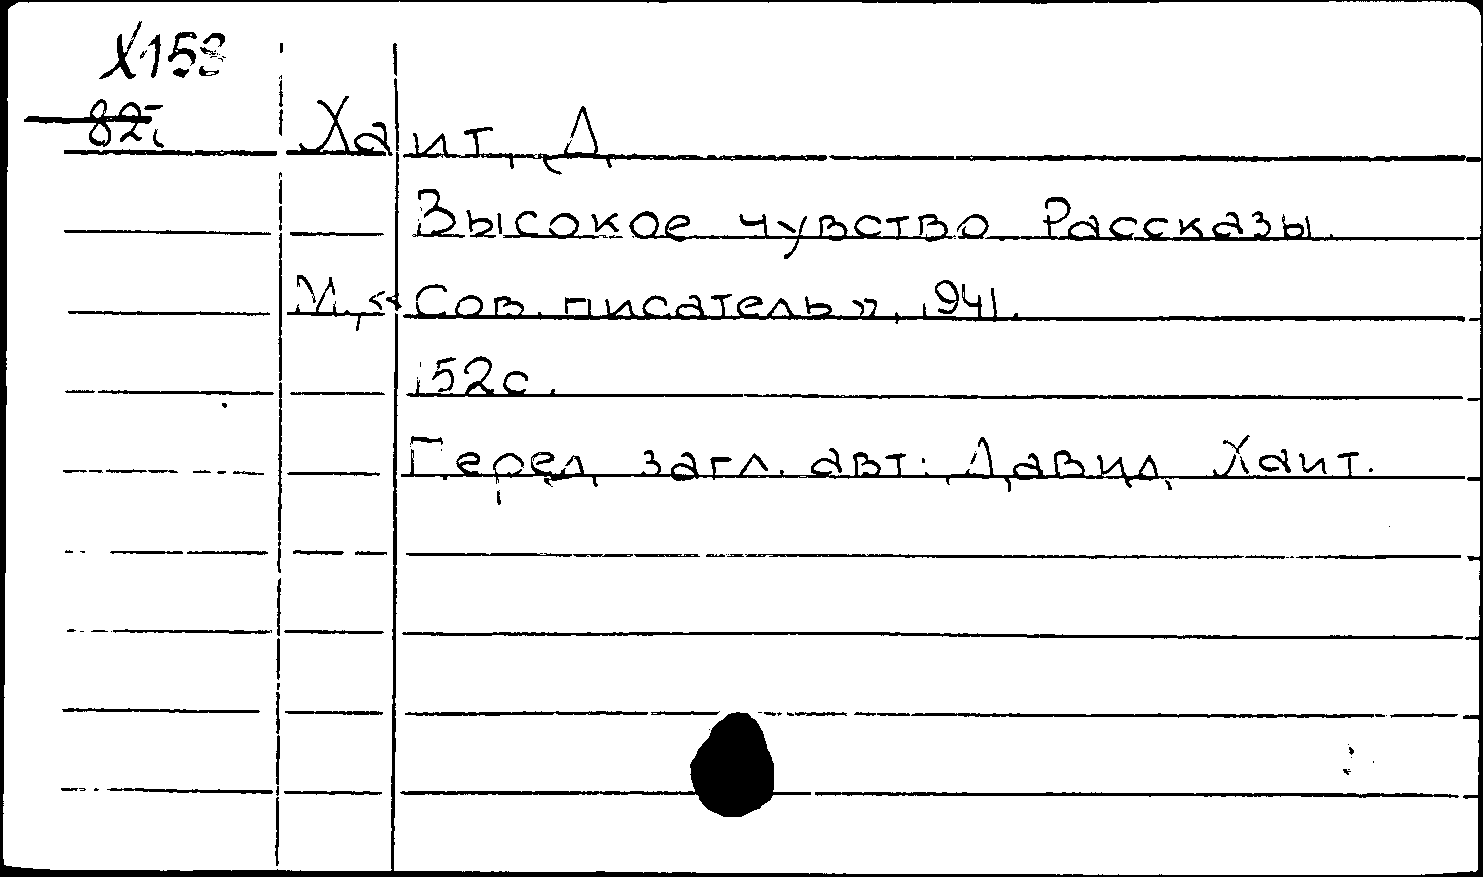 Х158
Хаит, Д.
Высокое чувство. Рассказы.
М., «Сов. писатель», 1941.
152с.
Перед загл. авт: Давид Хаит.